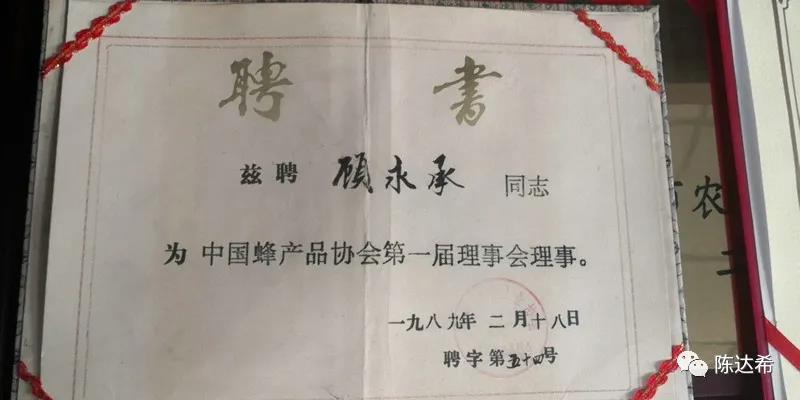 聘书
兹聘 顾永承 同志
为 中国蜂产品协会第一届理事会理事。
一九八九年 二月十八日
聘字第五十四号
农
陈达希